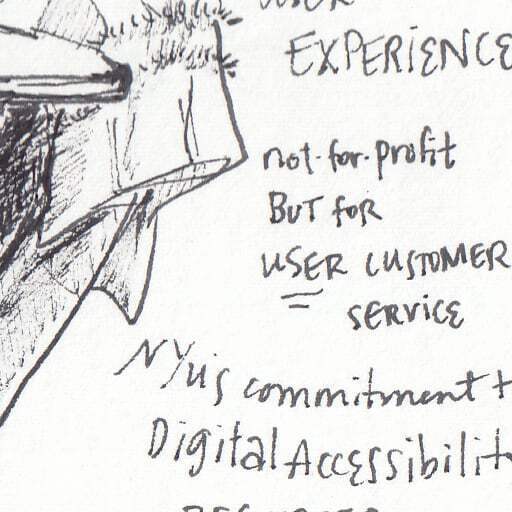 USER
EXPERIENCE
not-for-profit
BUT FOR
USER CUSTOMER
SERVICE
NYU's commitment t
Digital Accessibilit